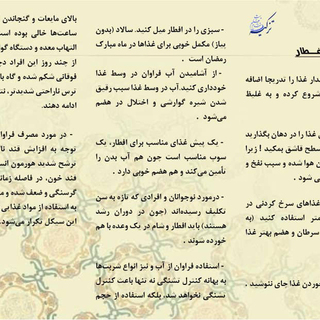 ـفـطـار
ـدار غذا را تدریجا اضافه
شروع کرده و به غلیظ
غذا را در دهان بگذارید
سطح قاشق بمکید ! زیرا
هوا شده و سیب نفخ و
ی شود .
غذاهای سرخ کردنی در
استفاده کنید (به
سرطان و هضم بهتر غذا
خوردن غذا جای ننوشید .
- سبزی را در افطار میل کنید. سالاد (بدون
پیاز) مکمل خوبی برای غذاها در ماه مبارک
رمضان است .
- از آشامیدن آب فراوان در وسط غذا
خودداری کنید.آب در وسط غذا سبب رقیق
شدن شیره گوارشی و اختلال در هضم
می‌شود .
- یک پیش غذای مناسب برای افطار، یک
سوپ مناسب است چون هم آب بدن را
تأمین می‌کند و هم هضم خوبی دارد .
-درمورد نوجوانان و افرادی که تازه به سن
تکلیف رسیده‌اند (چون در دوران رشد
هستند) باید افطار و شام در یک وعده با هم
خورده شوند .
- استفاده فراوان از آب و نیز انواع شربت‌ها
به بهانه کنترل تشنگی نه تنها باعث کنترل
تشنگی نخواهد شد، بلکه استفاده از حجم
بالای مایعات و گنجاندن
ساعت‌ها خالی بوده است
التهاب معده و دستگاه گوا
از چند روز این افراد دچا
فوقانی شکم شده و گاه با
ترس ناراحتی شدیدتر، نتو
ادامه دهند.
- در مورد مصرف فراوا
توجه به افزایش قند تا
ترشح شدید هورمون انس
قند خون، در فاصله زما
گرسنگی و ضعف شده و م
به استفاده از مواد غذایی
این سیکل تکرار می‌شود.